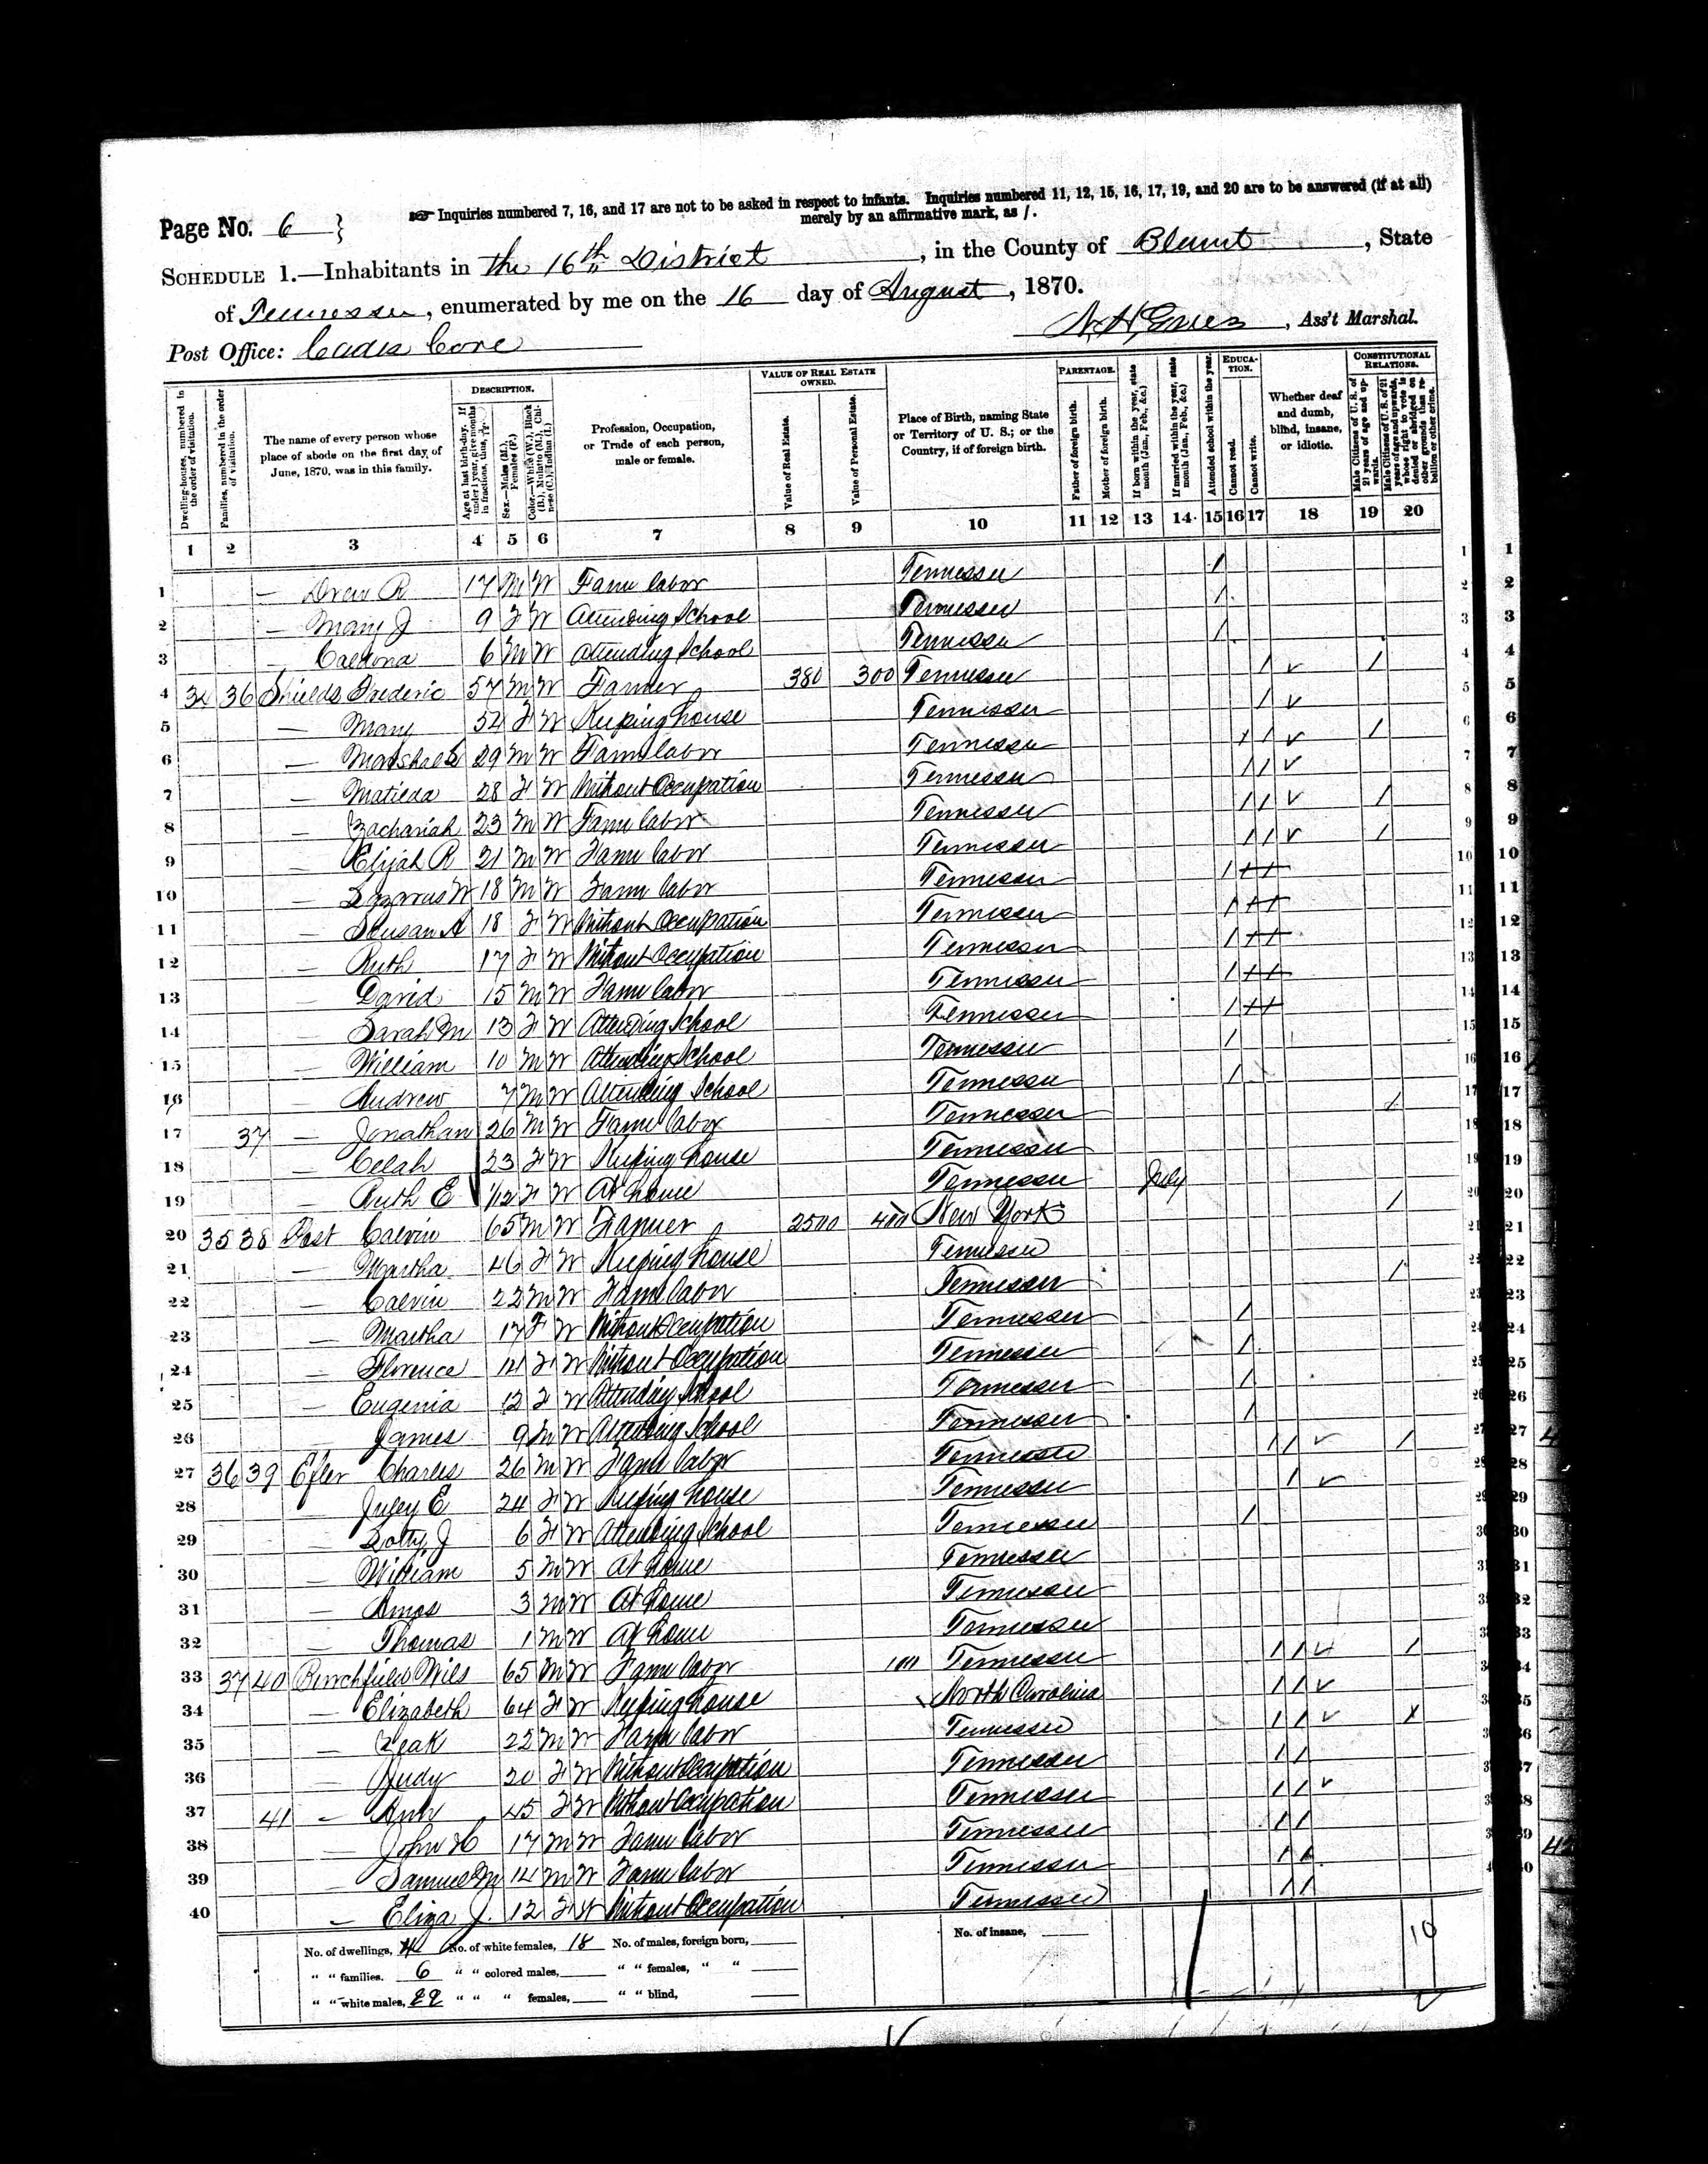 Page No. 6 }
Inquiries numbered 7, 16, and 17 are not to be asked in respect to infants. Inquiries numbered 11, 12, 15, 16, 17, 19, and 20 are to be answered (if at all)
merely by an affirmative mark, as /.
SCHEDULE 1.—Inhabitants in the 16th District, in the County of Blount, State
of Tennessee, enumerated by me on the 16 day of August, 1870.
Post Office: Cades Cove
Ass't Marshal.
Dwelling-houses, numbered in the order of visitation.
Families, numbered in the order of visitation.
The name of every person whose place of abode on the first day of June, 1870, was in this family.
DESCRIPTION.
Age at last birth-day. If under 1 year, give months in fractions, thus,
Sex.—Males (M.), Females (F.)
Color.—White (W.), Black (B.), Mulatto (M.), Chinese (C.), Indian (I.)
Profession, Occupation, or Trade of each person, male or female.
VALUE OF REAL ESTATE OWNED.
Value of Real Estate.
Value of Personal Estate.
Place of Birth, naming State or Territory of U. S.; or the Country, if of foreign birth.
PARENTAGE.
Father of foreign birth.
Mother of foreign birth.
If born within the year, state month (Jan., Feb., &c.)
If married within the year, state month (Jan., Feb., &c.)
Attended school within the year.
EDUCATION.
Cannot read.
Cannot write.
Whether deaf and dumb, blind, insane, or idiotic.
CONSTITUTIONAL RELATIONS.
Male Citizens of U. S. of 21 years of age and upwards.
Male Citizens of U. S. of 21 years of age and upwards, whose right to vote is denied or abridged on other grounds than rebellion or other crime.
1 2 3 4 5 6 7 8 9 10 11 12 13 14 15 16 17 18 19 20
1 — R 17 M W Farm labor Tennessee /
2 — Mary J 9 F W Attending School Tennessee /
3 — 6 M W Attending School Tennessee /
4 34 36 Shields Frederic 57 M W Farmer 380 300 Tennessee / /
5 — Mary 52 F W Keeping house Tennessee /
6 — 29 M W Farm labor Tennessee / / /
7 — Matilda 28 F W Without Occupation Tennessee / /
8 — Zachariah 23 M W Farm labor Tennessee / / /
9 — Elijah R 21 M W Farm labor Tennessee / / /
10 — W 18 M W Farm labor Tennessee /
11 — Susan A 18 F W Without Occupation Tennessee /
12 — Ruth 17 F W Without Occupation Tennessee /
13 — David 15 M W Farm labor Tennessee /
14 — Sarah M 13 F W Attending School Tennessee /
15 — William 10 M W Attending School Tennessee /
16 — Andrew 7 M W Attending School Tennessee /
17 37 — Jonathan 26 M W Farm labor Tennessee /
18 — Celah 23 F W Keeping house Tennessee
19 — Ruth E 1/12 F W At home Tennessee July
20 35 38 Post Calvin 65 M W Farmer 2500 400 New York /
21 — Martha 46 F W Keeping house Tennessee
22 — Calvin 22 M W Farm labor Tennessee /
23 — Martha 17 F W Without Occupation Tennessee /
24 — Florence 14 F W Without Occupation Tennessee /
25 — Eugenia 12 F W Attending School Tennessee /
26 — James 9 M W Attending School Tennessee /
27 36 39 Efler Charles 26 M W Farm labor Tennessee / / /
28 — E 24 F W Keeping house Tennessee /
29 — J 6 F W Attending School Tennessee /
30 — William 5 M W At home Tennessee
31 — Amos 3 M W At home Tennessee
32 — Thomas 1 M W At home Tennessee
33 37 40 Burchfield Wils 65 M W Farm labor 100 Tennessee / / /
34 — Elizabeth 64 F W Keeping house North Carolina / /
35 — 22 M W Farm labor Tennessee / / /
36 — Judy 20 F W Without Occupation Tennessee / /
37 41 — Ann 45 F W Without Occupation Tennessee / /
38 — John H 17 M W Farm labor Tennessee / /
39 — Samuel M 14 M W Farm labor Tennessee / /
40 — Eliza J. 12 F W Without Occupation Tennessee / /
No. of dwellings, 4 No. of white females, 18 No. of males, foreign born, No. of insane, 10
" " families. 6 " " colored males, " " females, " "
" " white males, 22 " " " females, " " blind,